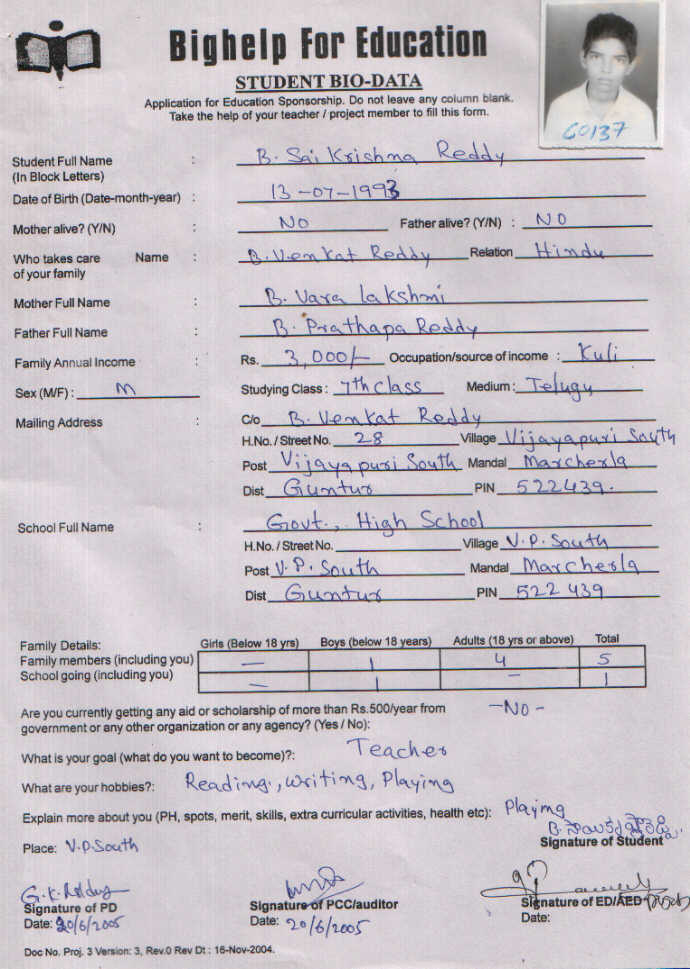 Bighelp For Education
STUDENT BIO-DATA
Application for Education Sponsorship. Do not leave any column blank.
Take the help of your teacher / project member to fill this form.
60137
Student Full Name : B. Sai Krishna Reddy
(In Block Letters)
Date of Birth (Date-month-year) : 13-07-1993
Mother alive? (Y/N) : NO Father alive? (Y/N) : NO
Who takes care Name : B. Venkat Reddy Relation Hindu
of your family
Mother Full Name : B. Vara lakshmi
Father Full Name : B. Prathapa Reddy
Family Annual Income : Rs. 3,000/- Occupation/source of income : Kuli
Sex (M/F) : M Studying Class : 7th class Medium : Telugu
Mailing Address : C/o B. Venkat Reddy
H.No. / Street No. 28 Village Vijayapuri South
Post Vijayapuri South Mandal Marcherla
Dist Guntur PIN 522439.
School Full Name : Govt., High School
H.No. / Street No. Village V.P. South
Post V.P. South Mandal Marcherla
Dist Guntur PIN 522 439
Family Details: Girls (Below 18 yrs) Boys (below 18 years) Adults (18 yrs or above) Total
Family members (including you) — 1 4 5
School going (including you) — 1 — 1
Are you currently getting any aid or scholarship of more than Rs.500/year from -NO-
government or any other organization or any agency? (Yes / No):
What is your goal (what do you want to become)?: Teacher
What are your hobbies?: Reading, writing, Playing
Explain more about you (PH, spots, merit, skills, extra curricular activities, health etc): Playing
Signature of Student
Place: V.P.South
G.K. Reddy
Signature of PD Signature of PCC/auditor Signature of ED/AED
Date: 20/6/2005 Date: 20/6/2005 Date:
Doc No. Proj. 3 Version: 3, Rev.0 Rev Dt : 16-Nov-2004.